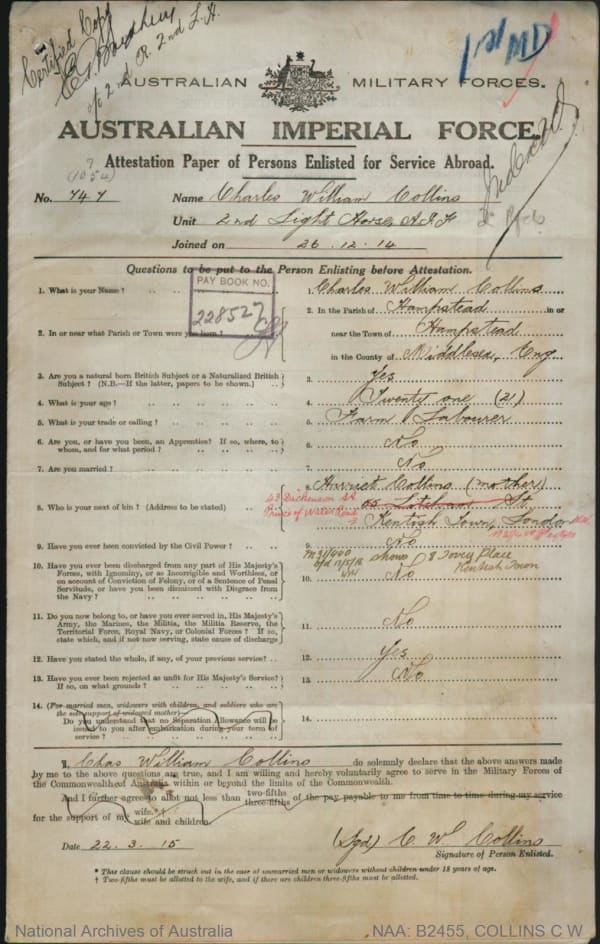 Certified Copy
o/c 2nd R. 2nd L.H.
1st MD
AUSTRALIAN MILITARY FORCES.
AUSTRALIAN IMPERIAL FORCE.
Attestation Paper of Persons Enlisted for Service Abroad.
?
(1054)
No. 747 Name Charles William Collins
Unit 2nd Light Horse, A.I.F
Joined on 26.12.14
Questions to be put to the Person Enlisting before Attestation.
PAY BOOK NO.
228527
1. What is your Name? 1. Charles William Collins
2. In or near what Parish or Town were you born? 2. In the Parish of Hampstead in or
near the Town of Hampstead
in the County of Middlesex, Eng
3. Are you a natural born British Subject or a Naturalized British
Subject? (N.B.—If the latter, papers to be shown.) 3. Yes
4. What is your age? 4. Twenty one (21)
5. What is your trade or calling? 5. Farm Labourer
6. Are you, or have you been, an Apprentice? If so, where, to
whom, and for what period? 6. No
7. Are you married? 7. No
8. Who is your next of kin? (Address to be stated) 8. Harriet Collins (mother)
43 Dickenson St
Prince of Wales Road
St
Kentish Town, London
9. Have you ever been convicted by the Civil Power? 9. No
shows 8 Tovey Place
Kentish Town
10. Have you ever been discharged from any part of His Majesty's
Forces, with Ignominy, or as Incorrigible and Worthless, or
on account of Conviction of Felony, or of a Sentence of Penal
Servitude, or have you been dismissed with Disgrace from
the Navy? 10. No
11. Do you now belong to, or have you ever served in, His Majesty's
Army, the Marines, the Militia, the Militia Reserve, the
Territorial Force, Royal Navy, or Colonial Forces? If so,
state which, and if not now serving, state cause of discharge 11. No
12. Have you stated the whole, if any, of your previous service? 12. Yes
13. Have you ever been rejected as unfit for His Majesty's Service?
If so, on what grounds? 13. No
14. (For married men, widowers with children, and soldiers who are
the sole support of widowed mother)—
Do you understand that no Separation Allowance will be
issued to you after embarkation during your term of
service? 14.
I, Chas William Collins do solemnly declare that the above answers made
by me to the above questions are true, and I am willing and hereby voluntarily agree to serve in the Military Forces of
the Commonwealth of Australia within or beyond the limits of the Commonwealth.
And I further agree to allot not less than two-fifths
three-fifths of the pay payable to me from time to time during my service
for the support of my wife.*†
wife and children
Date 22.3.15 (Sgd) C W Collins
Signature of Person Enlisted.
* This clause should be struck out in the case of unmarried men or widowers without children under 18 years of age.
† Two-fifths must be allotted to the wife, and if there are children three-fifths must be allotted.
National Archives of Australia NAA: B2455, COLLINS C W